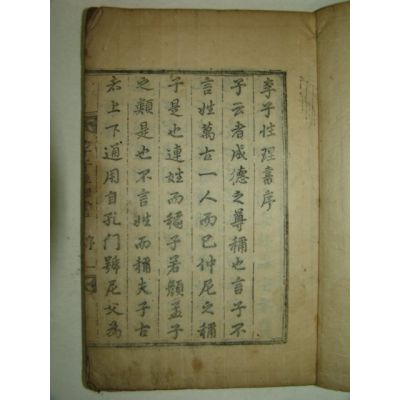 李子性理書序
子云者成德之尊稱也言子不
言姓萬古一人而已仲尼之稱
子是也連姓而稱子若顔孟子
之類是也不言姓而稱夫子古
者上下通用自孔門號尼父為
序 一